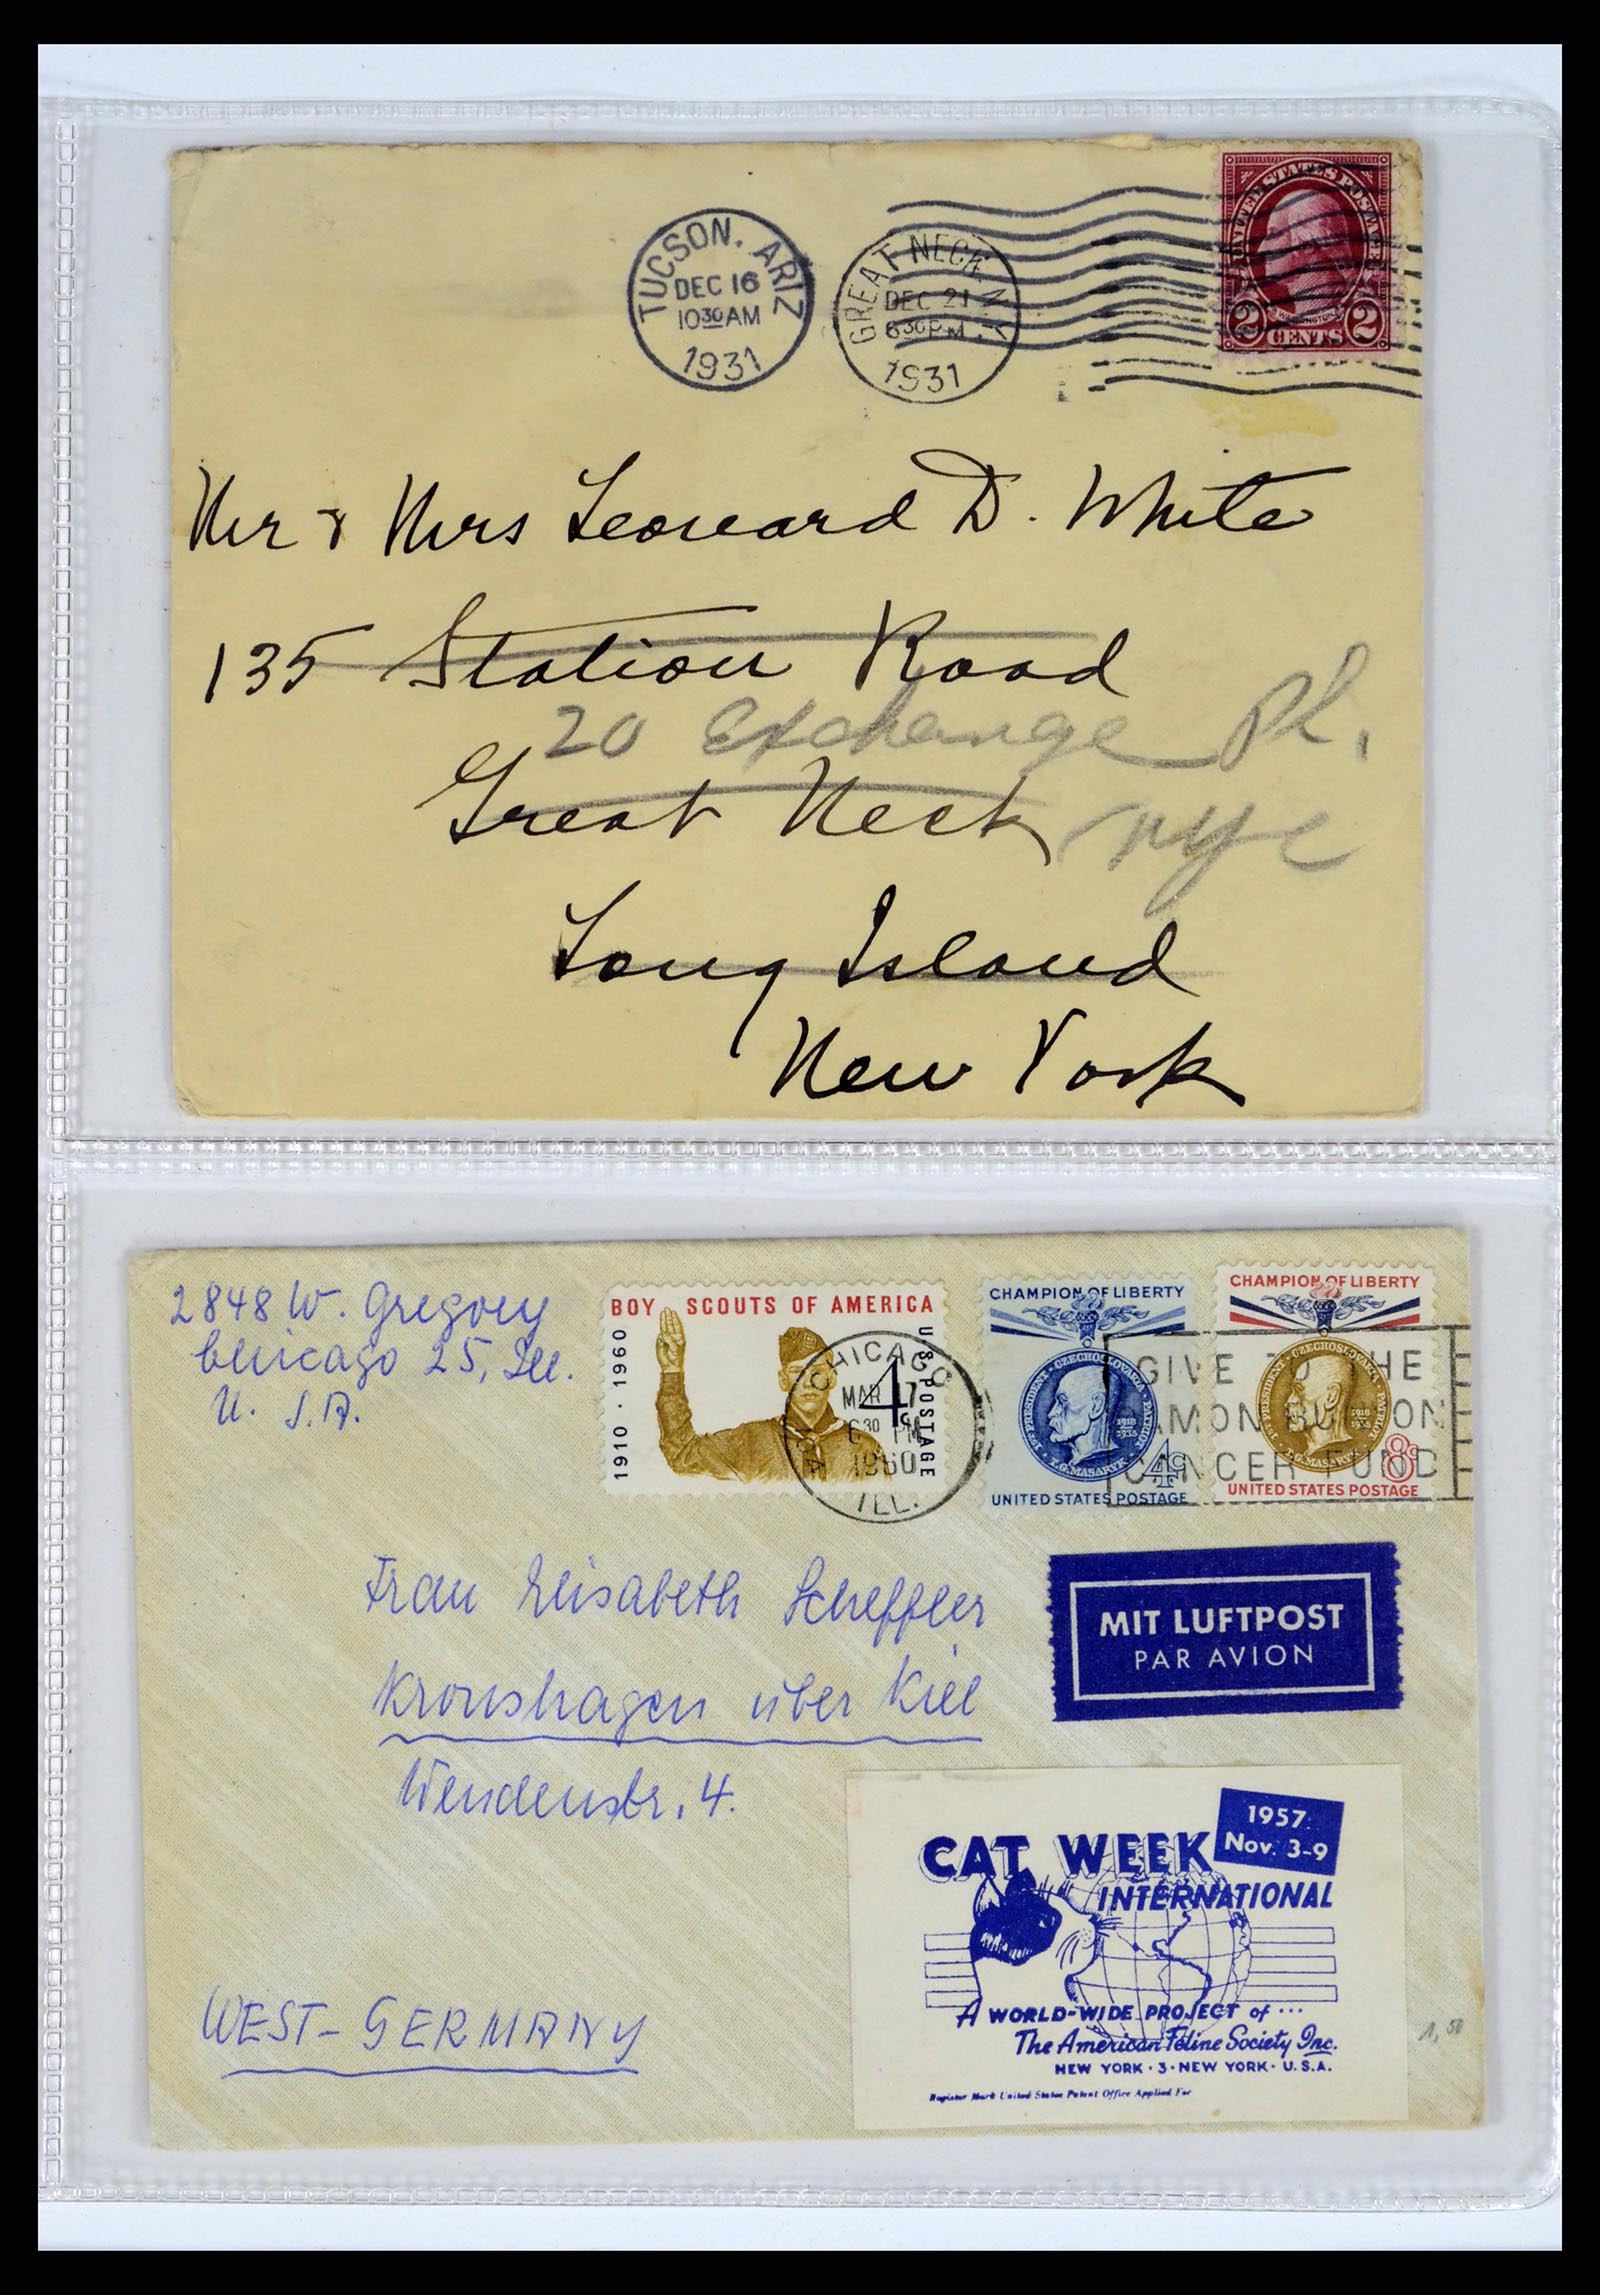 TUCSON, ARIZ
DEC 16
10 30 AM
1931
GREAT NECK N.Y.
DEC 21
6 30 PM
1931
UNITED STATES POSTAGE
WASHINGTON
2 CENTS 2
Mr & Mrs Leonard D. White
135 Station Road
20 Exchange Pl.
Great Neck NYC
Long Island
New York
2848 W. Gregory
Chicago 25, Ill.
U. S. A.
BOY SCOUTS OF AMERICA
1910 · 1960
U.S. POSTAGE
4c
CHICAGO
MAR 17
6 30 PM
1960
ILL.
CHAMPION OF LIBERTY
1st PRESIDENT · CZECHOSLOVAKIA · PATRIOT
1918
1935
T.G. MASARYK
4c
UNITED STATES POSTAGE
CHAMPION OF LIBERTY
1st PRESIDENT · CZECHOSLOVAKIA · PATRIOT
1918
1935
T.G. MASARYK
8c
UNITED STATES POSTAGE
GIVE TO THE
DAMON RUNYON
CANCER FUND
Frau Elisabeth Scheffler
Kronshagen über Kiel
Wendenstr. 4.
WEST-GERMANY
MIT LUFTPOST
PAR AVION
1957
Nov. 3-9
CAT WEEK
INTERNATIONAL
A WORLD-WIDE PROJECT of ...
The American Feline Society Inc.
NEW YORK · 3 · NEW YORK · U.S.A.
Register Mark United States Patent Office Applied For
1,50